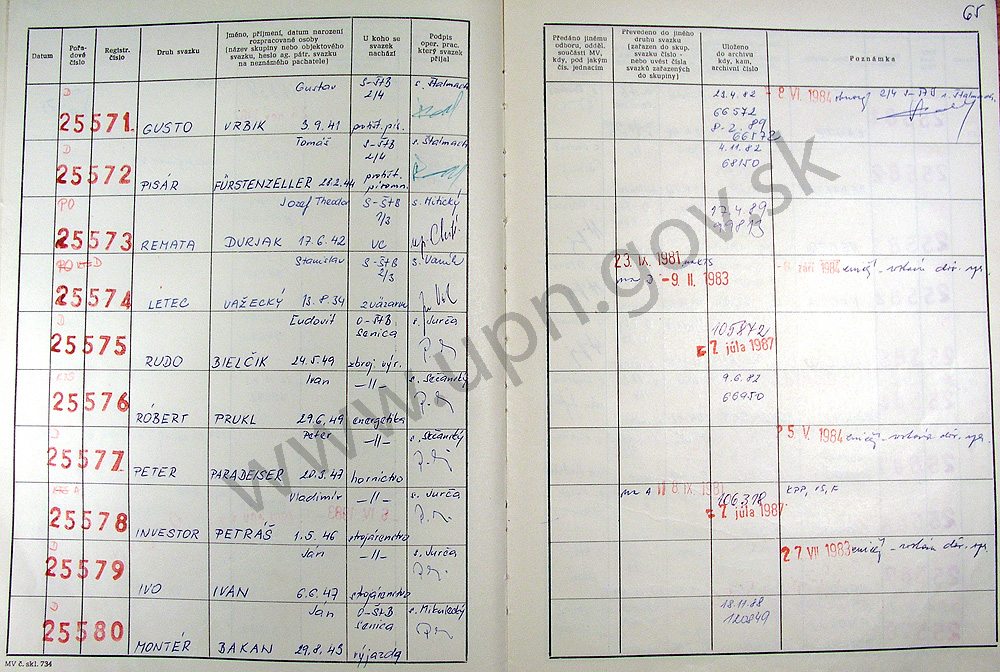 65
Datum
Pořa-
dové
číslo
Registr.
číslo
Druh svazku
Jméno, příjmení, datum narození
rozpracované osoby
(název skupiny nebo objektového
svazku, heslo ag. pátr. svazku
na neznámého pachatele)
U koho se
svazek
nachází
Podpis
oper. prac.
který svazek
přijal
Předáno jinému
odboru, odděl.
součásti MV,
kdy, pod jakým
čís. jednacím
Převedeno do jiného
druhu svazku
(zařazen do skup.
svazku číslo -
nebo uvést čísla
svazků zařazených
do skupiny)
Uloženo
do archívu
kdy, kam,
archivní číslo
Poznámka
D
Gustav
S-ŠtB
2/4
s. Štalmach
25571
GUSTO
VRBIK 3.9.41
23.4.82
66572
8.2.89
66572
- 8 VI. 1984
D
Tomáš
S-ŠtB
2/4
s. Štalmach
25572
PISÁR
FÜRSTENZELLER 28.2.44
4.11.82
68150
PO
Jozef Theodor
S-ŠtB
1/3
VC
s. Mitický
25573
REMATA
DURJAK 17.6.42
17.4.89
PO D
Stanislav
S-ŠtB
2/3
s. Vaněk
25574
LETEC
VAŽECKÝ 13.8.34
zväzarm
23. IX. 1981
- 9. II. 1983
září 1984
D
Ľudovít
O-ŠtB
Senica
s. Jurča
25575
RUDO
BIELČIK 24.5.49
zbroj. výr.
105872
7 júla 1987
Ivan
-11-
s. Sečanský
25576
RÓBERT
PRUKL 29.6.49
energetika
9.6.82
66950
D
Peter
-11-
s. Sečanský
25577
PETER
PARADEISER 20.5.47
horníctvo
25 V. 1984
Vladimír
-11-
s. Jurča
25578
INVESTOR
PETRÁŠ 1.5.46
strojárenstvo
na A
IX 1981
106318
7 júla 1987
KPP, IS, F
D
Ján
-11-
s. Jurča
25579
IVO
IVAN 6.6.47
strojárenstvo
27. VII 1983
D
Ján
O-ŠtB
Senica
25580
MONTÉR
BAKAN 29.8.45
výjazdy
18.11.88
120849
MV č. skl. 734
www.upn.gov.sk